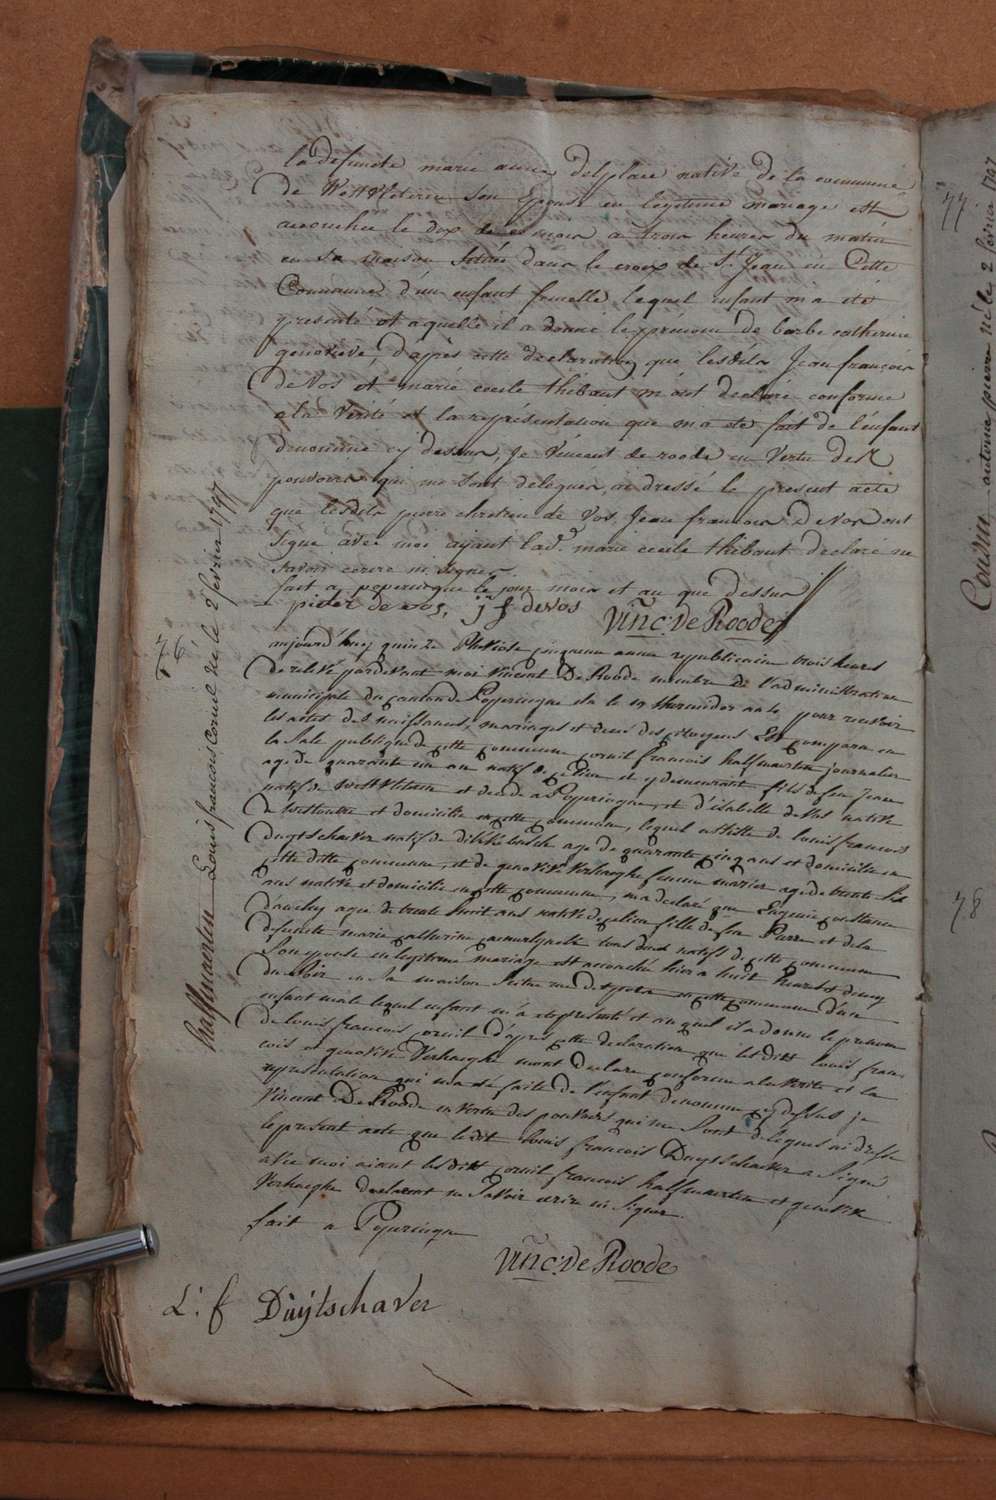 la defuncte marie anne delplace native de la commune
De Westvleteren son Epouse en legitime mariage est
accouchée le dix de ce mois a trois heures du matin
en sa maison située dans le croix de St. Jean en Cette
Commune d'un enfant femelle lequel enfant m'a été
presenté et aquelle il a donné le prénom de barbe catherine
genoveve, d'après cette declaration que lesdits Jean françois
De Vos et marie cecile thibaut m'ont declaré conforme
a la Verité et la représentation que m'a été fait de l'enfant
denommé cy dessus, Je Vincent de roode en Vertu des
pouvoirs qui me sont delegués, ai dressé le present acte
que lesdits pierre chretien de Vos, Jean francois De Vos ont
signe avec moi ayant lad.e marie cecile thibaut declaré ne
savoir ecrire ni signer.
fait a poperingue le jour mois et an que dessus
pieter de vos, j f devos Vinc: De Roode
76
halfmaerten Louis francois Corneil né le 2 fevrier 1797
aujourd'huy quinze Pluviose cinqieme annee republicaine trois heurs
De relevé pardevant moi vincent De Roode membre de l'administration
municipale du canton de Poperingue elu le 19 thermidor an 4 pour recevoir
les actes des naissances, mariages et decé des citoyens Est comparu en
la Sale publique de cette commune corneil françois halfmaerten journalier
age de quarante un an natif de ce lieu et y demeurant fils de feu Jean
natif de Westvleteren et decede a Poperingue, et d'isabelle de Vos native
de westoutre et domicilie en cette commune, lequel assisté de louis francois
Duytschaver natif de dikkebusch age de quarante cinq ans et domicilie en
cette ditte commune, et de genovive Verhaeghe femme marier age de trente six
ans native et domicilie en cette commune, m'a declaré que Eugenie constance
Dauchy agee de trente huit ans native de ce lieu fille de feu Pierre et de la
defuncte marie catherine tous deux natifs de cette commune
Son epouse en legitime mariage est accouchée hier a huit heures et demy
du soir en sa maison située rue de en cette commune d'un
enfant male lequel enfant m'a ete presenté et au quel il a donne le prenom
de louis francois corneil d'après cette declaration que lesdits louis fran-
cois et genovive Verhaeghe m'ont declare conforme a la verite et la
representation qui m'a été faite de l'enfant denomme cy dessus je
Vincent De Roode en vertu des pouvoirs qui me sont delegues ai dressé
le present acte que ledit louis francois Duytschaever a signé
avec moi aiant lesdits corneil francois halfmaerten et genovive
Verhaeghe declaront ne savoir ecrire ni signer.
fait a Poperingue
Vinc: De Roode
L: f Duÿtschaver
77
Cousin antoine pierre né le 2 fevrier 1797
78